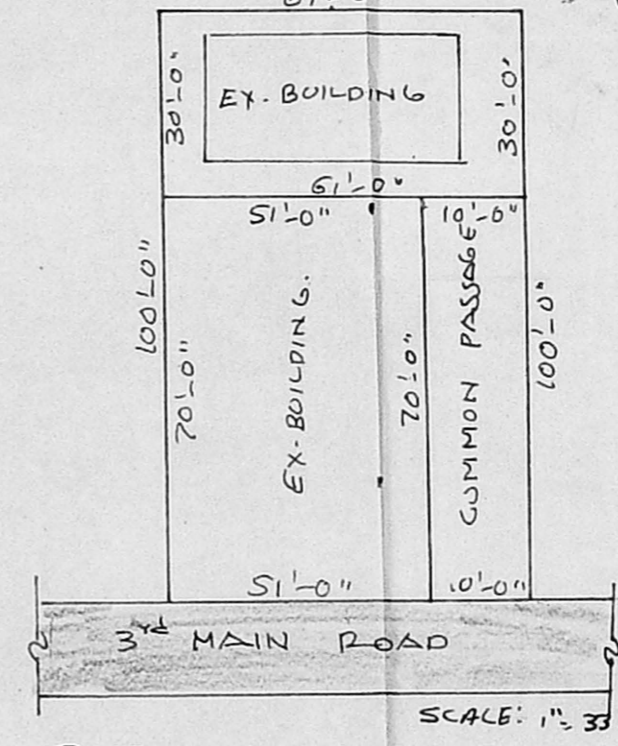 30'-0"
EX. BUILDING
30'-0"
61'-0"
51'-0"
10'-0"
100'-0"
70'-0"
EX-BUILDING.
70'-0"
COMMON PASSAGE
100'-0"
51'-0"
10'-0"
3rd MAIN ROAD
SCALE: 1"= 33